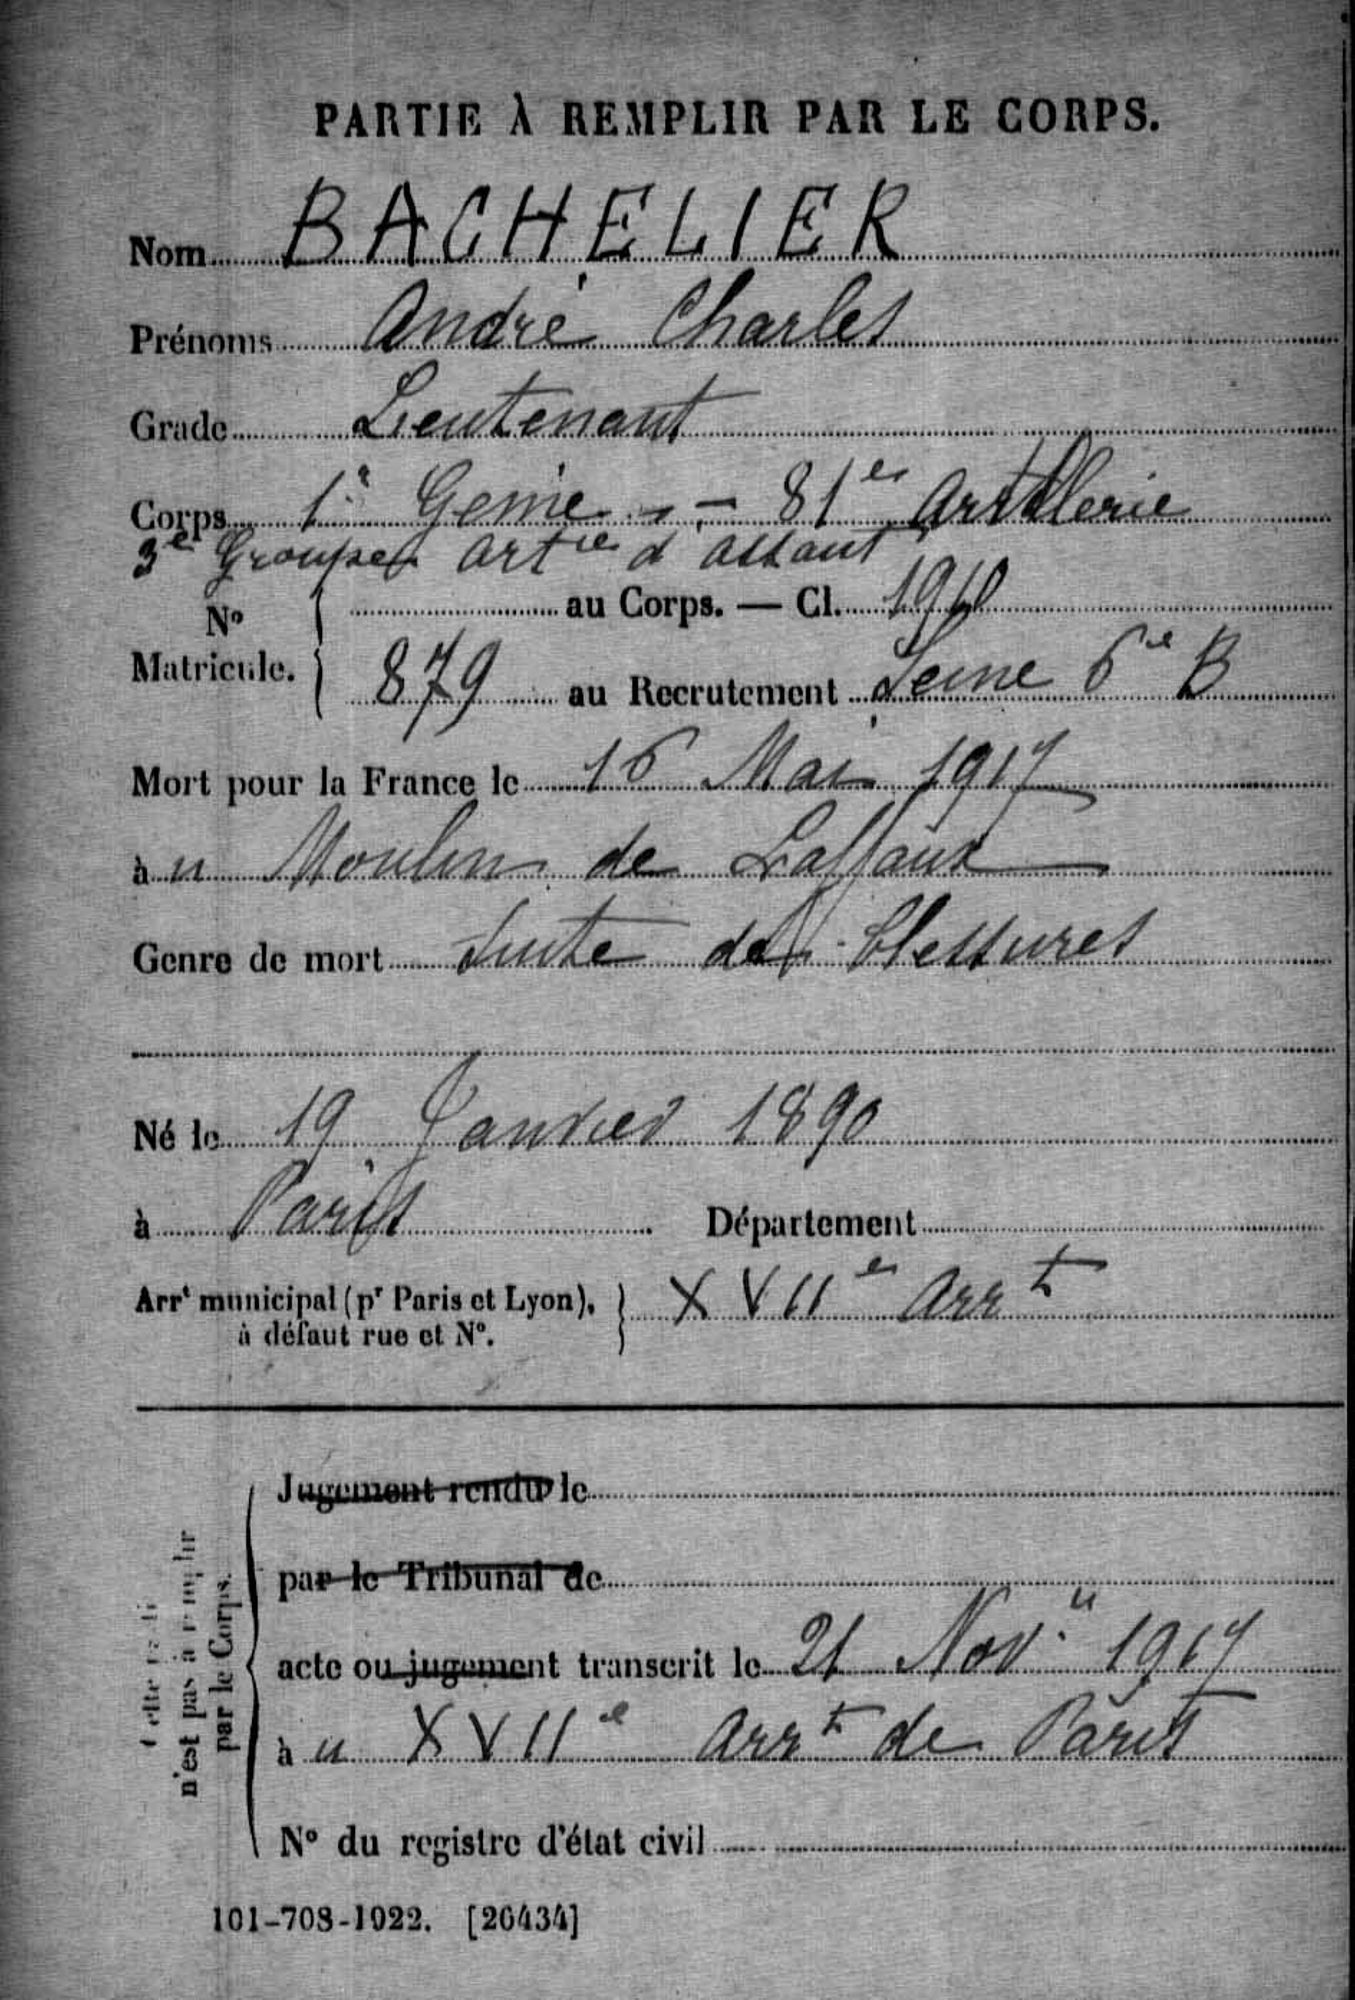 PARTIE À REMPLIR PAR LE CORPS.
Nom BACHELIER
Prénoms André Charles
Grade Lieutenant
Corps 1er Génie - 81e Artillerie
3e Groupe Artie d'assaut
No Matricule. au Corps. — Cl. 1910
879 au Recrutement Seine 6e B
Mort pour la France le 16 Mai 1917
à u Moulin de Laffaux
Genre de mort Suite de blessures
Né le 19 Janvier 1890
à Paris Département
Arrt municipal (pr Paris et Lyon), XVIIe Arrt
à défaut rue et No.
Jugement rendu le
par le Tribunal de
acte ou jugement transcrit le 21 Nov. 1917
à u XVIIe Arrt de Paris
No du registre d'état civil
n'est pas à remplir
par le Corps.
101-708-1922. [26434]